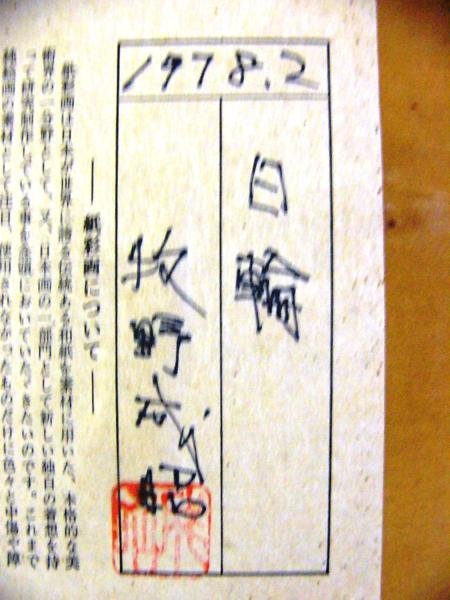 1978.2
日輪
野
── 紙彩画について ──
紙彩画は日本が世界に誇る伝統ある和紙を素材に用いた、本格的な美
術界の一分野として、又、日本画の一部門として新しい独自の着想を持
って研究制作している事を念頭においていただきたいのです。これまで
絵画の素材として注目、使用されなかったものだけに色々と中傷や障